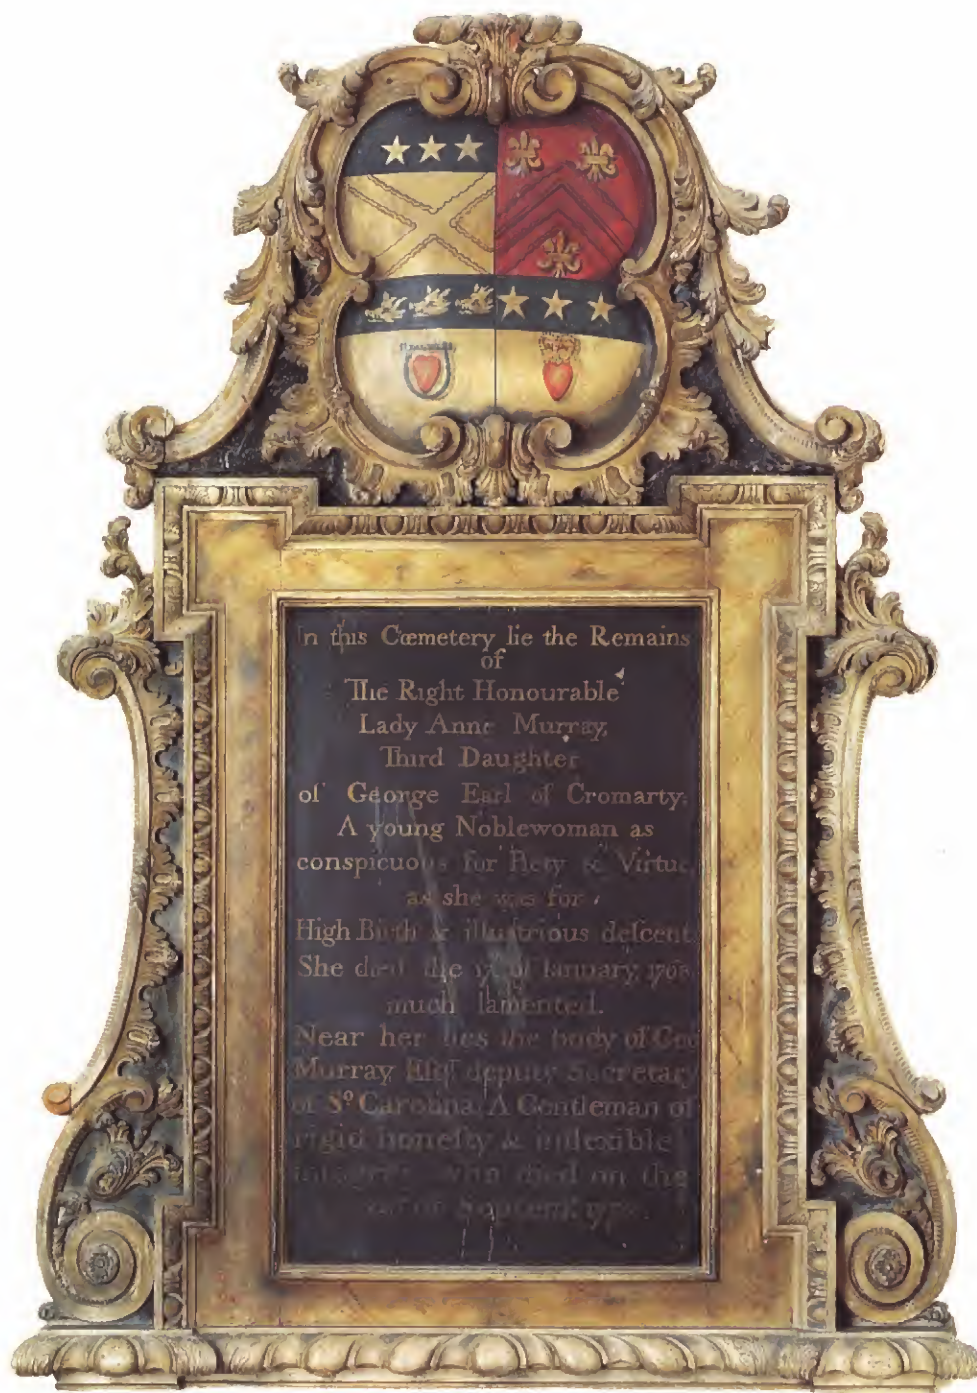 In this Cœmetery lie the Remains
of
The Right Honourable
Lady Anne Murray,
Third Daughter
of George Earl of Cromarty,
A young Noblewoman as
conspicuous for Piety & Virtue
as she was for
High Birth & illustrious deſcent
She died the of January
much lamented.
Near her lies the body of Geo
Murray Eſqr deputy Secretary
of So Carolina. A Gentleman of
rigid honeſty & inflexible
integrity who died on the
of Septemr